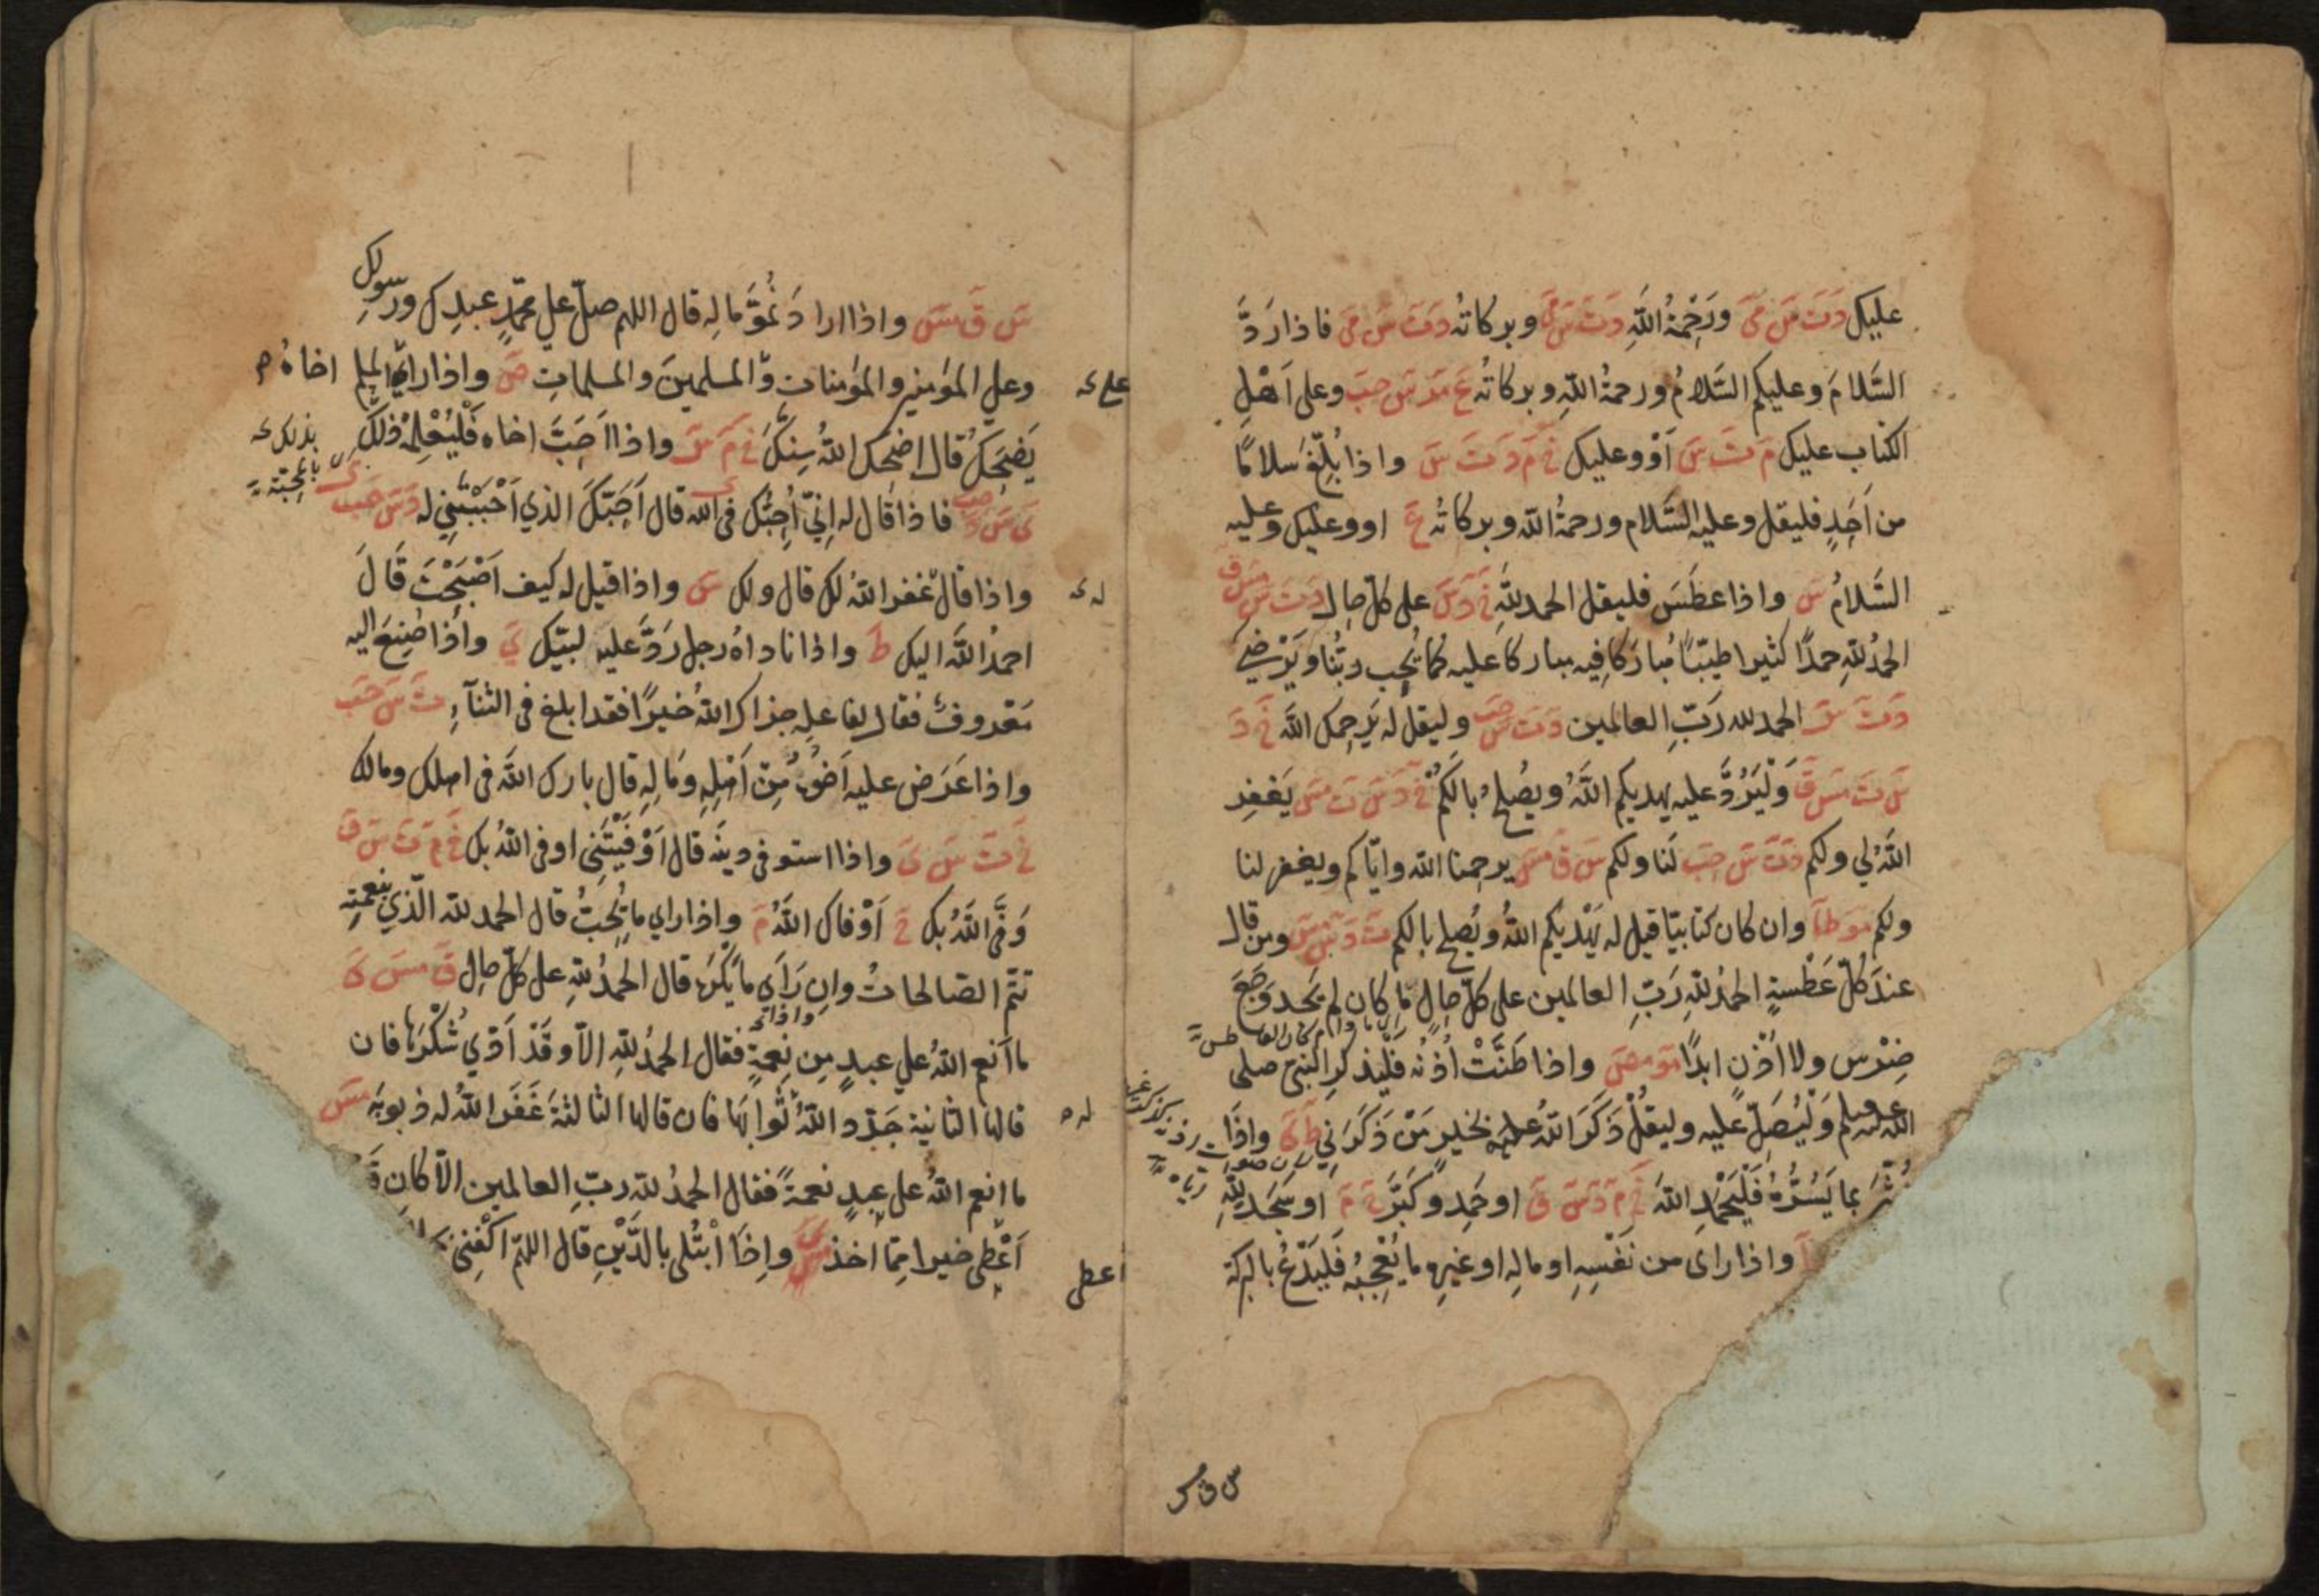 عليك دَتَ سَ مَى ورَحْمَةُ اللّٰهِ دَتَ سَ مَى وبركاتُه دَتَ سَ مَى فاذا رَدَّ
السَّلامَ وعليكم السَّلامُ ورحمةُ اللّٰهِ وبركاتُه عَ مَدَ سَ حبَ وعلى اَهْلِ
الكتاب عليك مَ تَ سَ اَوْ وعليك خَ مَ دَ تَ سَ واذا بُلِّغَ سلامًا
من اَحَدٍ فليقل وعليه السَّلام ورحمةُ اللّٰه وبركاتُه عَ او وعليك وعليه
السَّلامُ سَ واذا عطَسَ فليقل الحمد للّٰهِ خَ دَ سَ على كلّ حالٍ دَ تَ سَ مسَ قَ
الحمدُ للّٰهِ حمدًا كثيرا طيّبًا مُبارَكا فِيه مباركا عليه كما يُحِب ربُّنا ويَرْضىٰ
دَ تَ سَ الحمد للّٰه رَبِّ العالمين دَ تَ سَ حبَ وليقل له يَرحمك اللّٰه خَ دَ
سَ تَ مسَ قَ وَلْيَرُدَّ عليه يهديكم اللّٰهُ ويصْلِحُ بالَكُمْ خَ دَ سَ تَ مسَ يَغفِر
اللّٰهُ لي ولكم دَ تَ سَ حبَ لَنا ولكم سَ قَ مسَ يرحمنا اللّٰه وايّاكم ويغفر لنا
ولكم مَوطَا وان كان كتابيّا قيل له يَهْديكُم اللّٰهُ ويُصلح بالكم تَ دَ سَ مسَ ومن قال
عندَ كُلّ عَطْسةٍ الحمدُ للّٰهِ رَبّ العالمين على كلّ حالٍ ما كان لم يَجد وَجَعَ
ضِرْسٍ ولا اُذُنٍ ابدًا مَو مصَ واذا طَنَّتْ اُذُنُه فَلْيذكُرِ النّبيّ صلى
اللّٰه عليه وسلم وَلْيُصَلِّ عليه وليقُلْ ذَكَرَ اللّٰهُ بخيرٍ مَنْ ذَكَرَنِي طَ ىَ واِذَا
بُشِّرَ بما يَسُرُّهُ فَلْيَحْمَدِ اللّٰهَ خَ مَ دَ سَ قَ او حَمِد وكَبَّرَ خَ مَ او سَجَد للّٰهِ
واذا راى من نَفْسِهِ او مالِه او غيرِهِ ما يُعْجِبُه فَليَدْعُ بالبركة
س ق مس
سَ قَ مسَ واذا اراد نُمُوَّ مالِه قال اللهم صلّ على محمّدٍ عبدِك ورسولِك
وعلى المؤمنين والمؤمنات والمسلمينَ والمسلماتِ صَ واذا راى المسلم اخاهُ م
يَضحَكُ قال اضحك اللّٰهُ سِنَّكَ خَ مَ سَ واذا اَحَبَّ اخاه فَلْيُعْلِمْهُ ذلك
ىَ سَ دَ حبَ فاذا قال له اِنّي اُحِبُّك في اللّٰه قال اَحَبّكَ الذي اَحْبَبْتَنِي له دَ سَ حبَ
واذا قال غفر اللّٰهُ لك قال ولك سَ واذا قيل له كيف اَصْبَحْتَ قَالَ
احمدُ اللّٰهَ اليك طَ واذا ناداهُ رجل رَدَّ عليه لبّيك ىَ واذا صُنِعَ اليه
مَعروفٌ فقال لفاعلِه جزاك اللّٰهُ خيرًا فقد ابلغ في الثناۤءِ تَ سَ حبَ
واذا عَرَض عليه اَخُوه مِن اَهْلِهِ وَمالِهِ قال بارك اللّٰهُ في اهلك ومالك
خَ تَ سَ ىَ واذا استوفى دينَه قال اَوْفَيْتَنِي اوفى اللّٰهُ بك خَ مَ تَ سَ قَ
وَفَّى اللّٰهُ بك خَ اَوْفاك اللّٰهُ مَ واذا راى ما يُحِبُّ قال الحمد للّٰه الّذي بنعمتِه
تتمّ الصالحاتُ وان رَاَى ما يَكْرَه قال الحمدُ للّٰهِ على كلّ حالٍ قَ مسَ ىَ
ما اَنعم اللّٰهُ على عبدٍ مِن نِعمةٍ فقال الحمدُ للّٰهِ الّا وقَدْ اَدّى شُكْرَها فان
قالها الثانيةَ جَدّد اللّٰهُ ثَوابَها فان قالها الثالثةَ غَفَرَ اللّٰهُ له ذنوبَه مسَ
ما انعم اللّٰهُ على عبدٍ نعمةً فقال الحمدُ للّٰه ربّ العالمين الّا كان قَ
اَعْطى خيرا مِمّا اخذ ىَ واِذَا ابْتُلى بالدَّيْنِ قال اللهمّ اكْفِنى
بذلك
له
له
اعطى